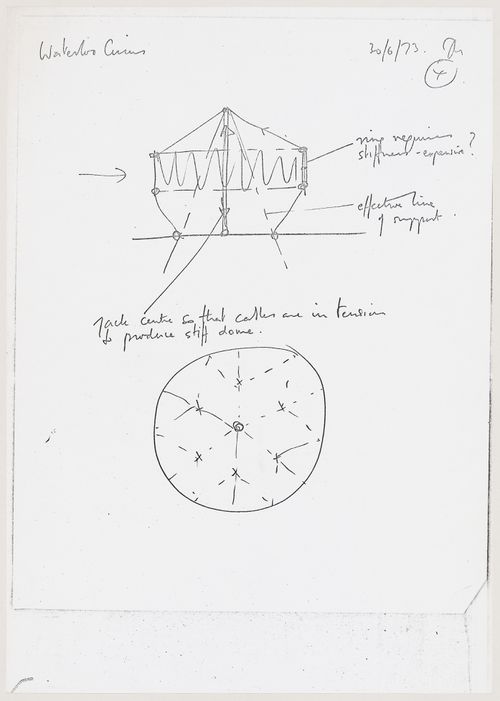 Waterloo Circus
30/6/73.
4
ring requires
stiffness - expensive?
effective line
of support.
Jack centre so that cables are in tension
to produce stiff dome.